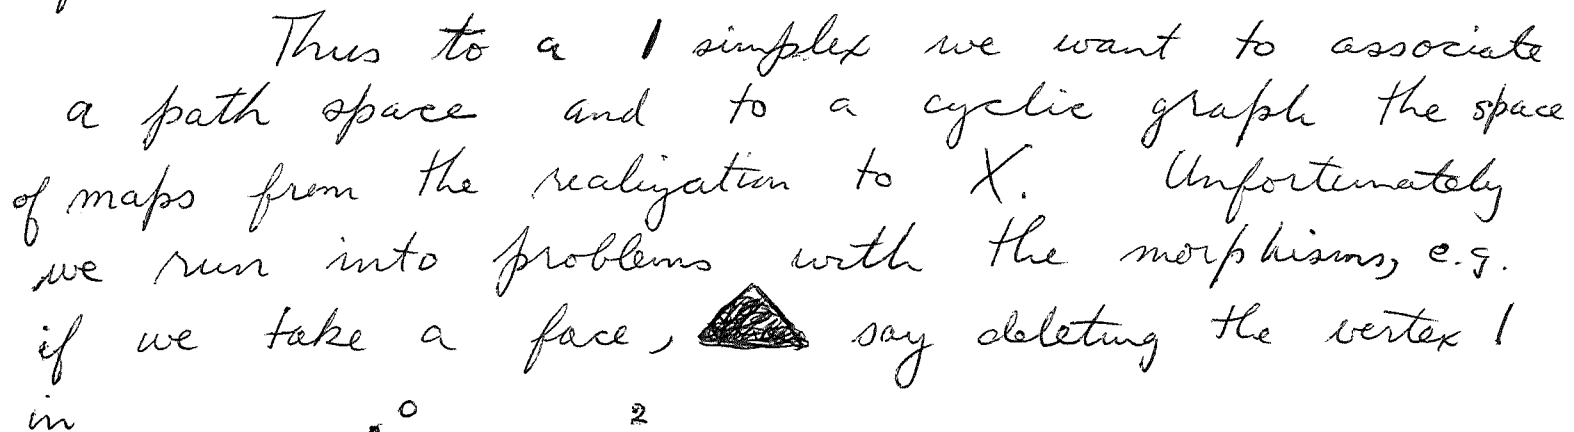 Thus to a 1 simplex we want to associate
a path space and to a cyclic graph the space
of maps from the realization to X. Unfortunately
we run into problems with the morphisms, e.g.
if we take a face, say deleting the vertex 1
in 0 2